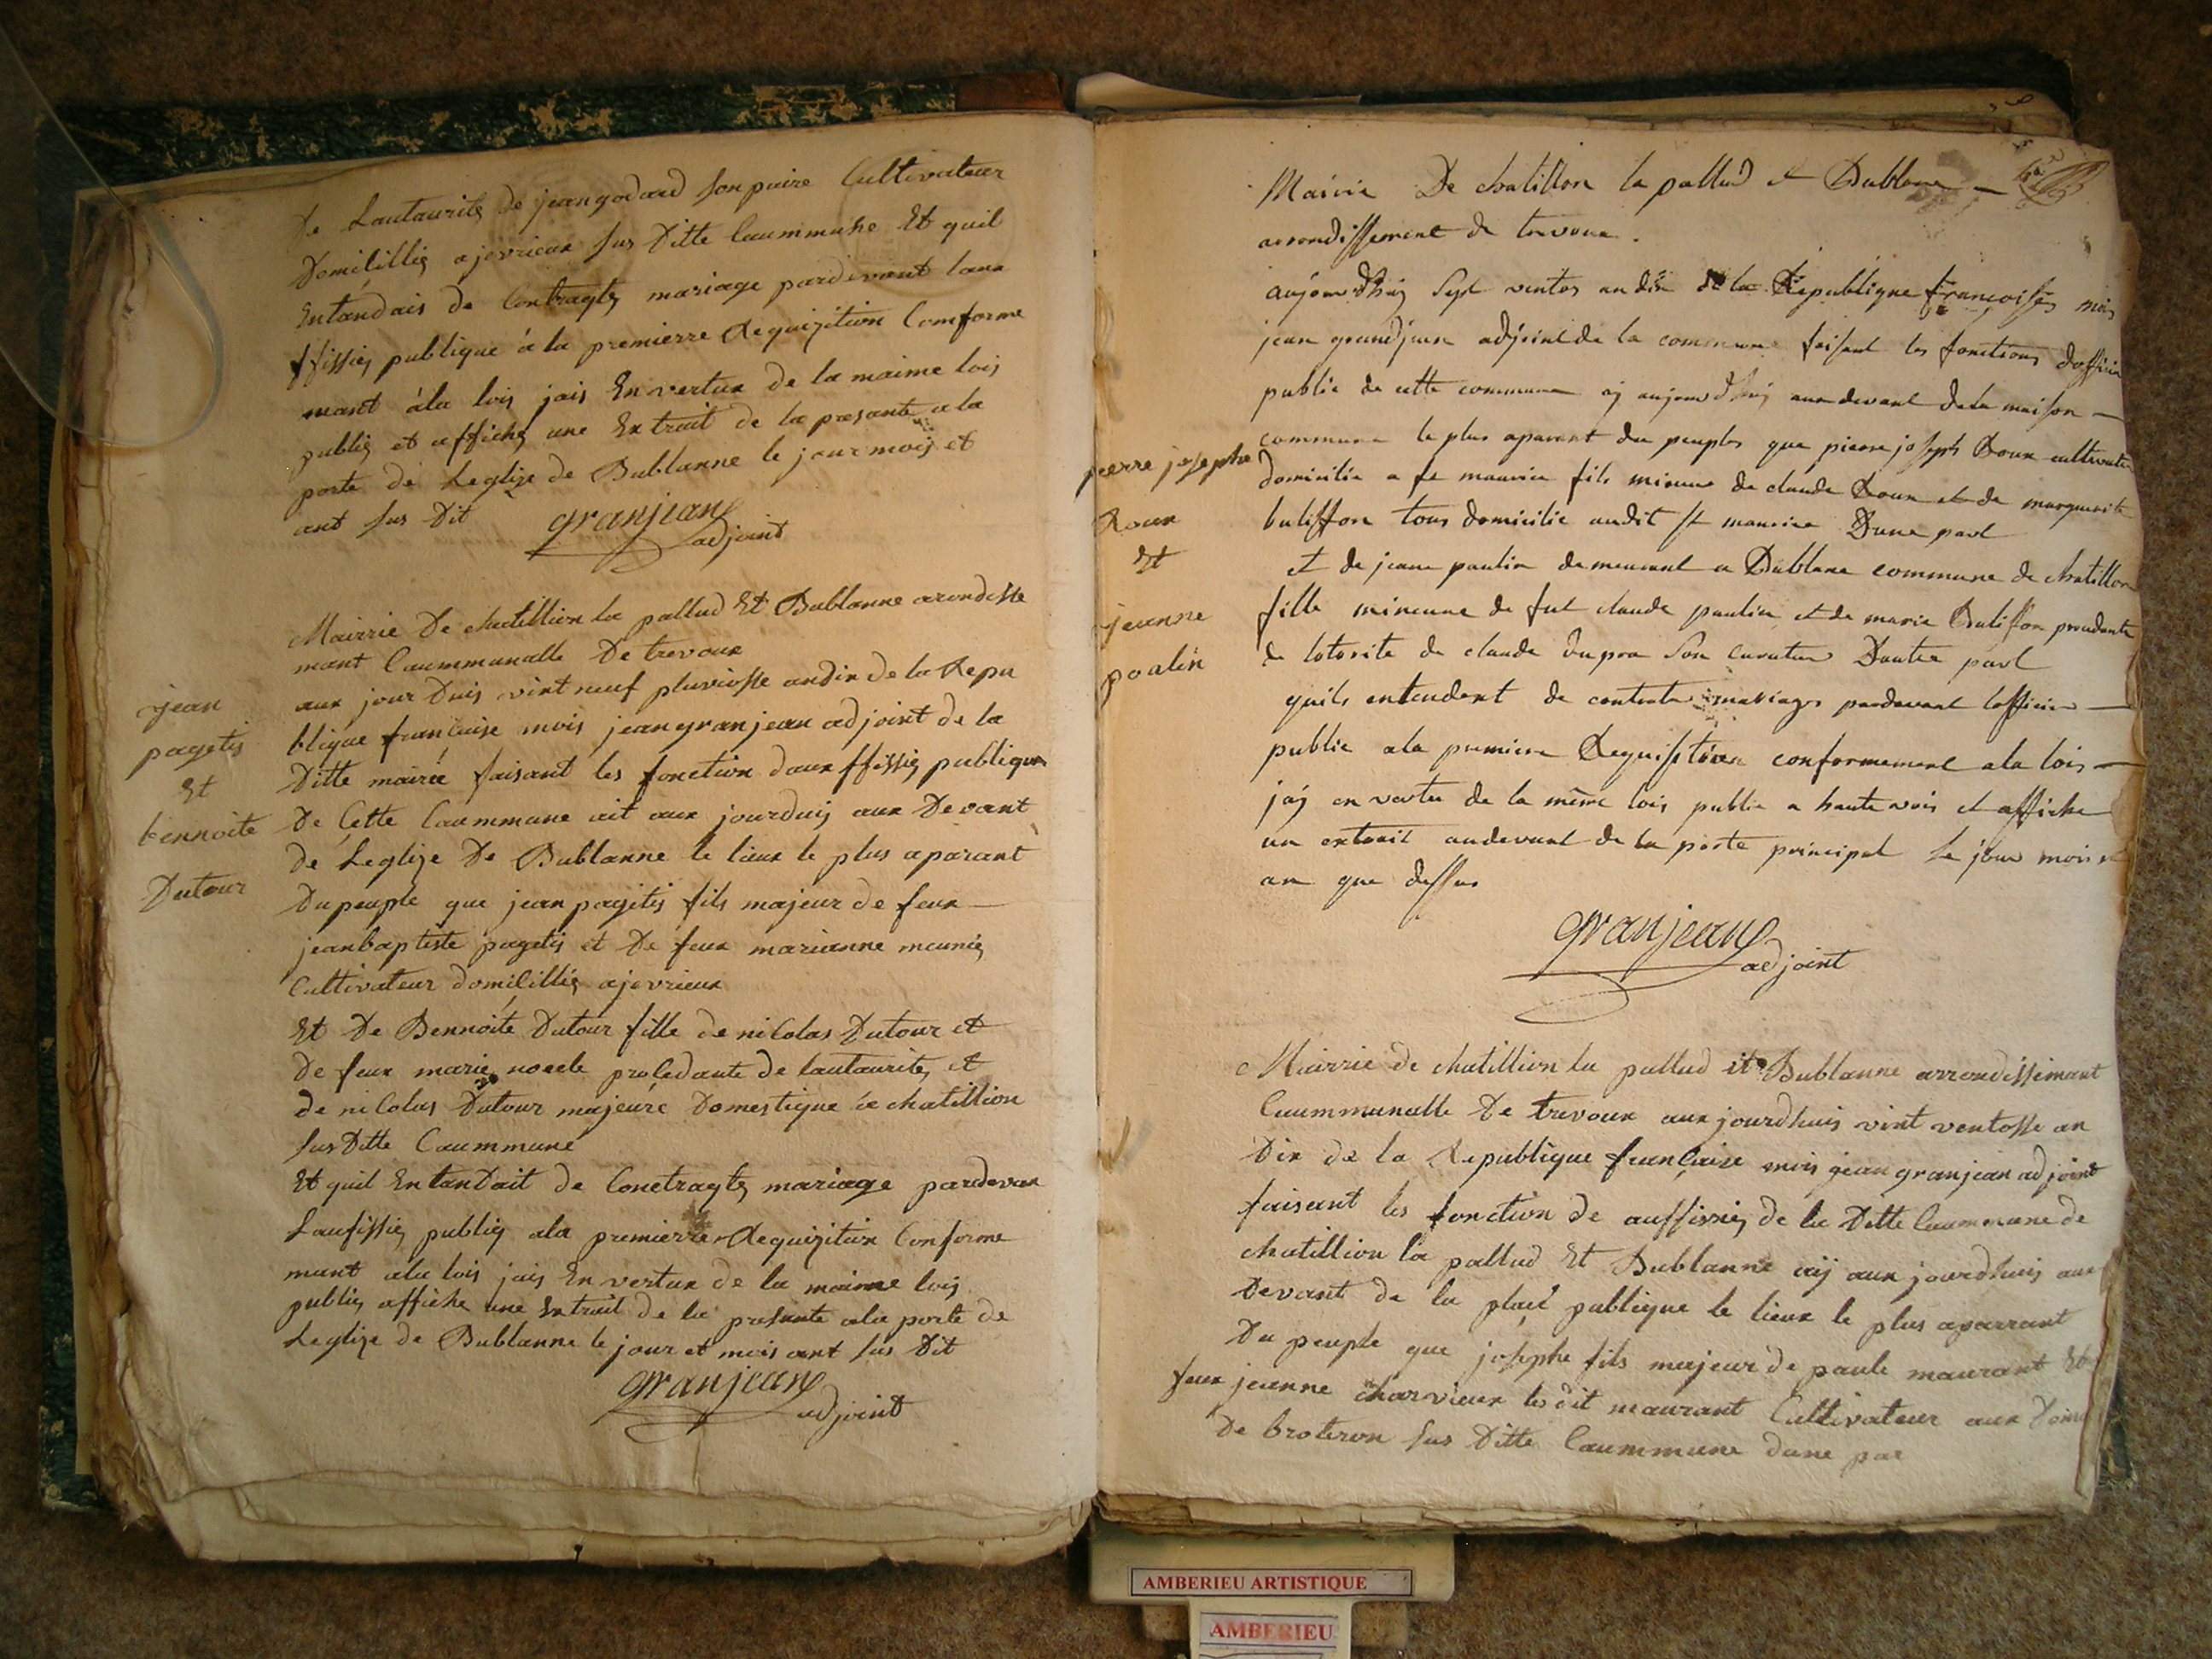 De Lautaurité de jean godard son paire Cultivateur
Domicillié a jevrieux sus Ditte Caummune Et quil
Entandais de Contragté mariage pardevant laux
ffissié publique à la premierre Requizition Comforme
mant à la lois jais En vertux de la maime lois
publié et affiché une Extrait de la presante a la
porte de Leglize de Bublanne le jour mois et
ant sus Dit
granjean
adjoint
Mairrie De chatillion la pallud Et Bublanne arondisse
mant Caummunalle De trevoux
aux jour Duis vint neuf pluviosse an dix de la Repu
blique française mois jean granjean adjoint de la
Ditte mairée faisant les fonction d'auxffissié publique
De Cette Caummune ait aux jourduis aux Devant
de Leglize De Bublanne le lieux le plus aparant
Du peuple que jean pagetis fils majeur de feux
jean baptiste pagetis et De feux marianne meunié
Cultivateur domicillié a jevrieux
Et De Bennoite Dutour fille de nicolas Dutour et
De feux marie procedante de lautaurité et
de nicolas Dutour majeure Domestique à chatillion
sus Ditte Caummune
Et quil EntanDait de Conetragté mariage pardevan
Laufissié publié a la premierre Requizition Conforme
mant a la lois jais En vertux de la maime lois
publié affiché une Extrait de la presante a la porte de
Leglize de Bublanne le jour et mois ant sus Dit
granjean
adjoint
jean
pagetis
Et
bennoite
Dutour
Mairie De chatillon la pallud et Bublane
arrondissement de trevoux.
aujourdhuy Sept ventos an dix de la Republique françoises moi
jean grandjean adjoint de la commune faisant les fonctions doffici
public de cette commune ay aujourdhuy au devant de la maison
commune le plus aparent du peuples que pierre joseph Roux cultivate
domicilie a maurice fils mineur de claude Roux et de marguerite
buliffon tous domicilie audit st maurice Dune part
et de jeane paulin demeurant a Bublane commune de chatillon
fille mineure de fut claude paulin et de marie Buliffon
de lotorite de claude dupra son curateur Dautre part
quils entendent de contrater mariages pardevant lofficier
public a la premiere Requisition conformement a la lois
jay en vertu de la même lois publie a haute vois et affiche
un extrait audevant de la porte principal le jour mois et
an que dessus
granjean
adjoint
pierre josephe
Roux
Et
jeanne
poalin
Mairrie de chatillion la pallud et Bublanne arrondissimant
Caummunalle De trevoux aux jourdhuis vint ventosse an
Dix de la Republique française mois jean granjean adjoint
faisant les fonction de auffissié de la Ditte Caummune de
chatillion la pallud Et Bublanne aij aux jourdhuis aux
Devant de la place publique le lieux le plus aparrant
Du peuple que josephe fils majeur de paule maurant Et
feux jeanne charvieux les dit maurant Cultivateur aux
De broteron sus Ditte Caummune dune par
AMBERIEU ARTISTIQUE
AMBERIEU